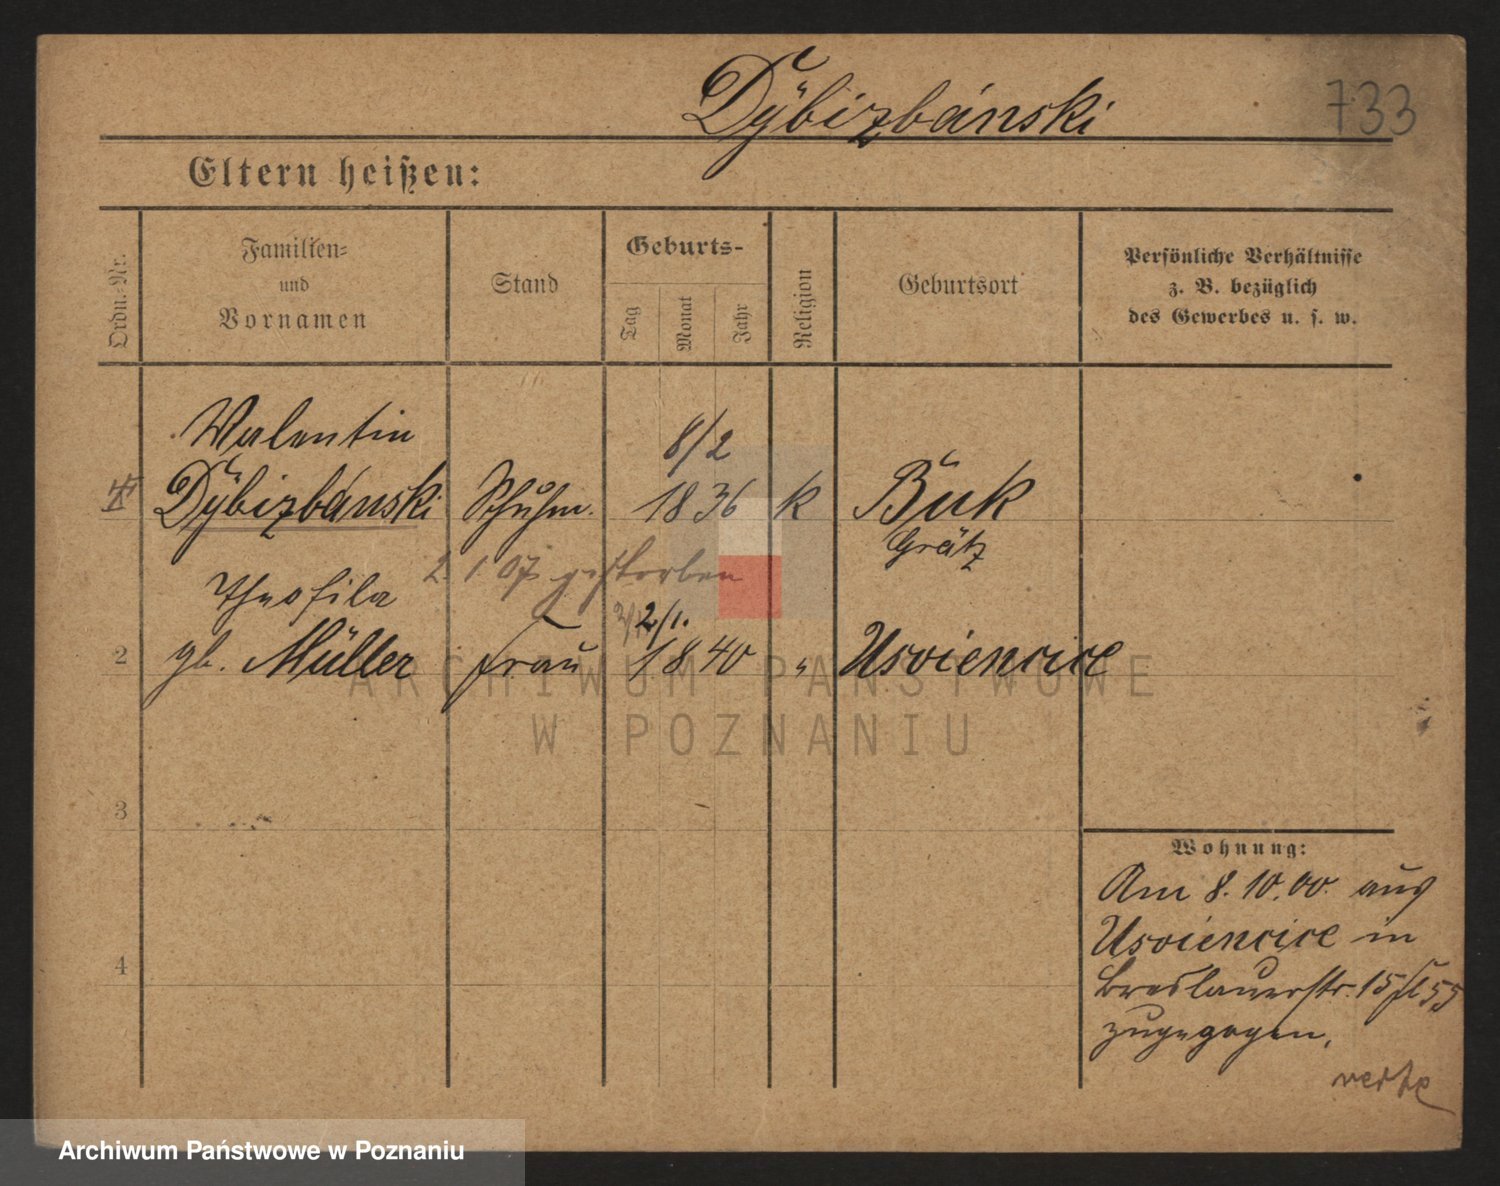 Dÿbizbánski
733
Eltern heißen:
Ordn.-Nr.
Familien-
und
Vornamen
Stand
Geburts-
Tag
Monat
Jahr
Religion
Geburtsort
Persönliche Verhältnisse
z. B. bezüglich
des Gewerbes u. s. w.
Valentin
8/2
Dÿbizbánski Schuhm. 1836 k Buk
Grätz
2. 1. 07 gestorben
Theofila
2/1.
2 gb. Müller Frau 1840 " Usoiencice
ARCHIWUM PAŃSTWOWE
W POZNANIU
3
4
Wohnung:
Am 8.10.00. aus
Usoiencice in
Breslauerstr. 15
zugezogen.
verte
Archiwum Państwowe w Poznaniu